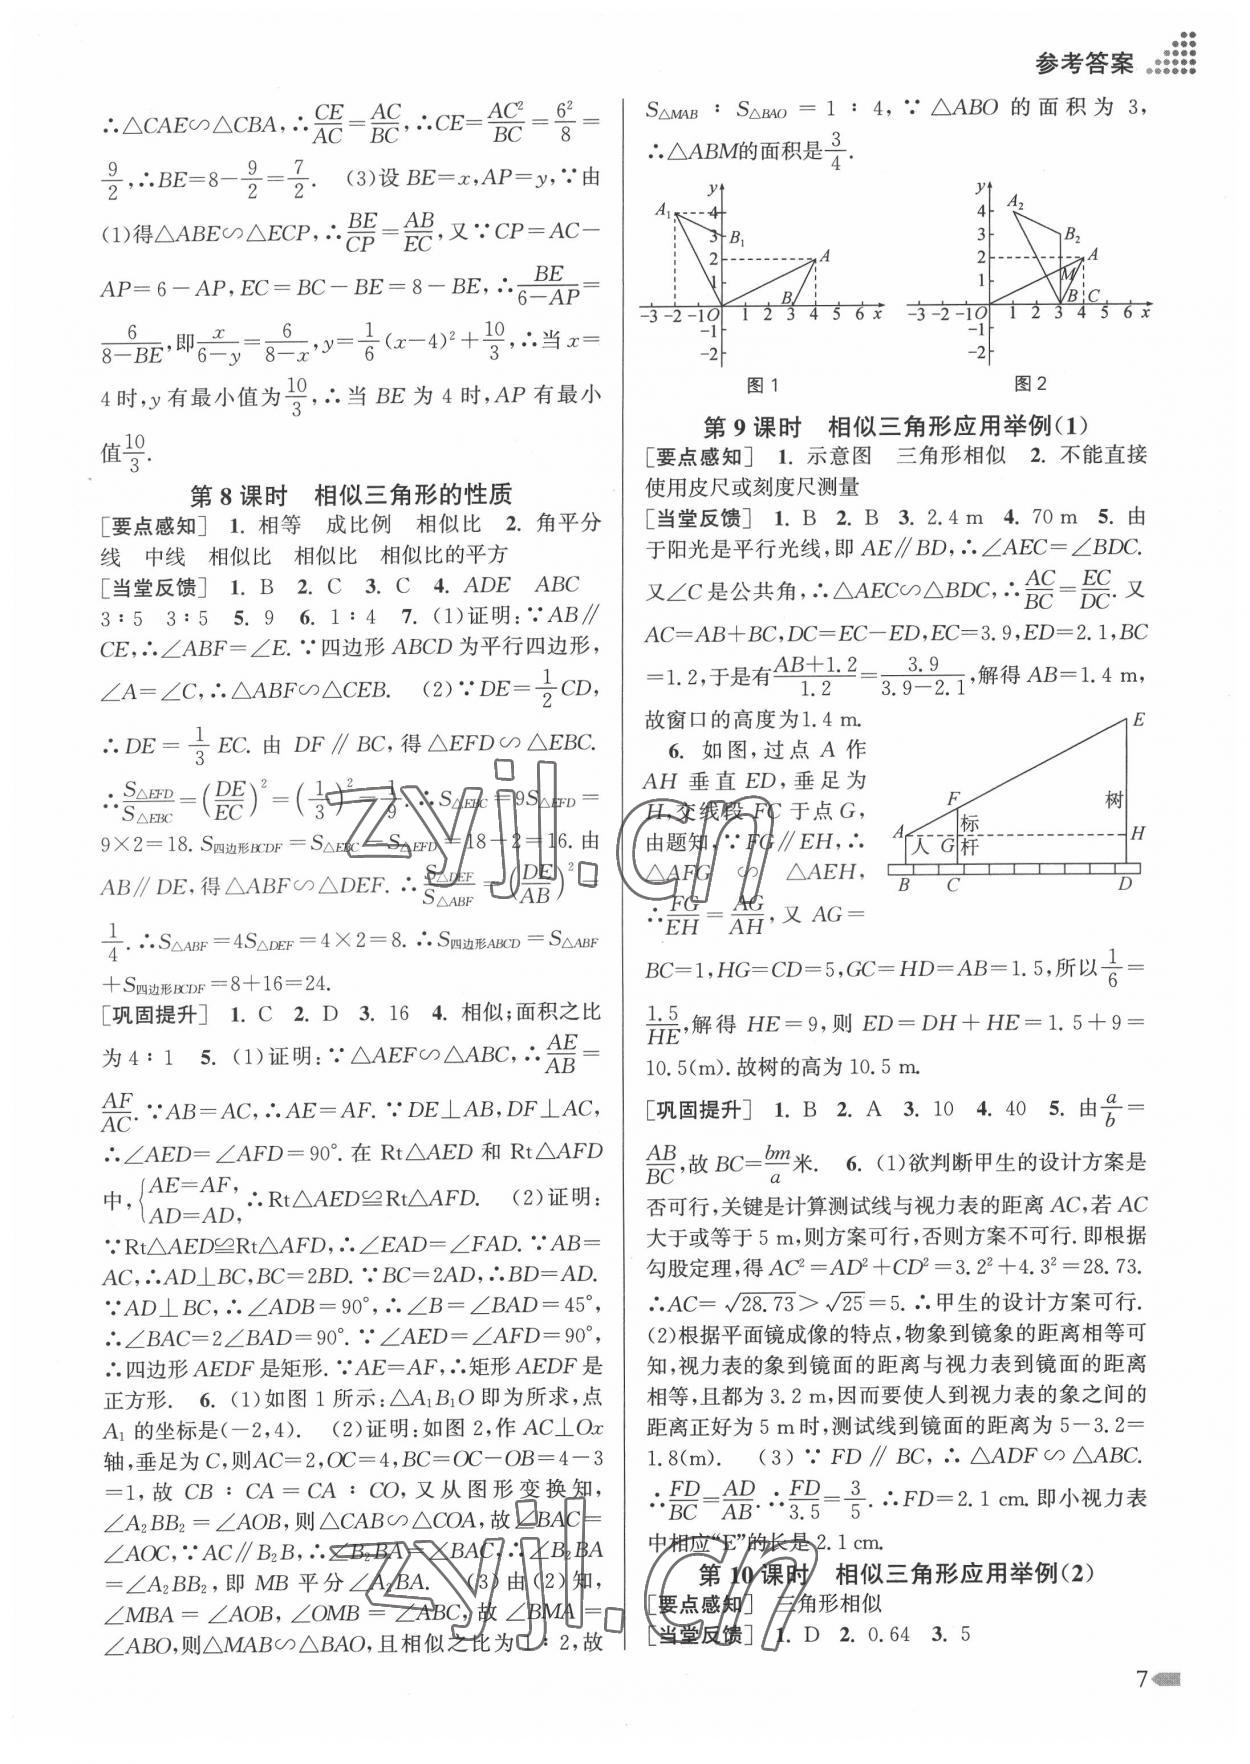 参考答案
∴△CAE∽△CBA,∴CE/AC=AC/BC,∴CE=AC²/BC=6²/8=
9/2,∴BE=8-9/2=7/2. (3)设BE=x,AP=y,∵由
(1)得△ABE∽△ECP,∴BE/CP=AB/EC,又∵CP=AC-
AP=6-AP,EC=BC-BE=8-BE,∴BE/(6-AP)=
6/(8-BE),即x/(6-y)=6/(8-x),y=1/6(x-4)²+10/3,∴当x=
4时,y有最小值为10/3,∴当BE为4时,AP有最小
值10/3.
第8课时 相似三角形的性质
[要点感知] 1. 相等 成比例 相似比 2. 角平分
线 中线 相似比 相似比 相似比的平方
[当堂反馈] 1. B 2. C 3. C 4. ADE ABC
3∶5 3∶5 5. 9 6. 1∶4 7. (1)证明:∵AB∥
CE,∴∠ABF=∠E.∵四边形ABCD为平行四边形,
∠A=∠C,∴△ABF∽△CEB. (2)∵DE=1/2CD,
∴DE=1/3EC.由DF∥BC,得△EFD∽△EBC.
∴S△EFD/S△EBC=(DE/EC)²=(1/3)²=1/9.∴S△EBC=9S△EFD=
9×2=18.S四边形BCDF=S△EBC-S△EFD=18-2=16.由
AB∥DE,得△ABF∽△DEF.∴S△DEF/S△ABF=(DE/AB)²=
1/4.∴S△ABF=4S△DEF=4×2=8.∴S四边形ABCD=S△ABF
+S四边形BCDF=8+16=24.
[巩固提升] 1. C 2. D 3. 16 4. 相似;面积之比
为4∶1 5. (1)证明:∵△AEF∽△ABC,∴AE/AB=
AF/AC.∵AB=AC,∴AE=AF.∵DE⊥AB,DF⊥AC,
∴∠AED=∠AFD=90°.在Rt△AED和Rt△AFD
中,{AE=AF, AD=AD,∴Rt△AED≌Rt△AFD. (2)证明:
∵Rt△AED≌Rt△AFD,∴∠EAD=∠FAD.∵AB=
AC,∴AD⊥BC,BC=2BD.∵BC=2AD,∴BD=AD.
∵AD⊥BC,∴∠ADB=90°,∴∠B=∠BAD=45°,
∴∠BAC=2∠BAD=90°.∵∠AED=∠AFD=90°,
∴四边形AEDF是矩形.∵AE=AF,∴矩形AEDF是
正方形. 6. (1)如图1所示:△A₁B₁O即为所求,点
A₁的坐标是(-2,4). (2)证明:如图2,作AC⊥Ox
轴,垂足为C,则AC=2,OC=4,BC=OC-OB=4-3
=1,故CB∶CA=CA∶CO,又从图形变换知,
∠A₂BB₂=∠AOB,则△CAB∽△COA,故∠BAC=
∠AOC,∵AC∥B₂B,∴∠B₂BA=∠BAC,∴∠B₂BA
=∠A₂BB₂,即MB平分∠A₂BA. (3)由(2)知,
∠MBA=∠AOB,∠OMB=∠ABC,故∠BMA=
∠ABO,则△MAB∽△BAO,且相似之比为1∶2,故
S△MAB∶S△BAO=1∶4,∵△ABO的面积为3,
∴△ABM的面积是3/4.
y A₁ 4 3 B₁ 2 A 1 B -3 -2 -1 O 1 2 3 4 5 6 x -1 -2
y A₂ 4 3 B₂ 2 A 1 M B C -3 -2 -1 O 1 2 3 4 5 6 x -1 -2
图1 图2
第9课时 相似三角形应用举例(1)
[要点感知] 1. 示意图 三角形相似 2. 不能直接
使用皮尺或刻度尺测量
[当堂反馈] 1. B 2. B 3. 2.4 m 4. 70 m 5. 由
于阳光是平行光线,即AE∥BD,∴∠AEC=∠BDC.
又∠C是公共角,∴△AEC∽△BDC,∴AC/BC=EC/DC.又
AC=AB+BC,DC=EC-ED,EC=3.9,ED=2.1,BC
=1.2,于是有(AB+1.2)/1.2=3.9/(3.9-2.1),解得AB=1.4 m,
故窗口的高度为1.4 m.
6. 如图,过点A作
AH垂直ED,垂足为
H,交线段FC于点G,
由题知,∵FG∥EH,∴
△AFG∽△AEH,
∴FG/EH=AG/AH,又AG=
E F 树 标 A 人 G 杆 H B C D
BC=1,HG=CD=5,GC=HD=AB=1.5,所以1/6=
1.5/HE,解得HE=9,则ED=DH+HE=1.5+9=
10.5(m).故树的高为10.5 m.
[巩固提升] 1. B 2. A 3. 10 4. 40 5. 由a/b=
AB/BC,故BC=bm/a米. 6. (1)欲判断甲生的设计方案是
否可行,关键是计算测试线与视力表的距离AC,若AC
大于或等于5 m,则方案可行,否则方案不可行.即根据
勾股定理,得AC²=AD²+CD²=3.2²+4.3²=28.73.
∴AC=√28.73>√25=5.∴甲生的设计方案可行.
(2)根据平面镜成像的特点,物象到镜象的距离相等可
知,视力表的象到镜面的距离与视力表到镜面的距离
相等,且都为3.2 m,因而要使人到视力表的象之间的
距离正好为5 m时,测试线到镜面的距离为5-3.2=
1.8(m). (3)∵FD∥BC,∴△ADF∽△ABC.
∴FD/BC=AD/AB.∴FD/3.5=3/5.∴FD=2.1 cm.即小视力表
中相应“E”的长是2.1 cm.
第10课时 相似三角形应用举例(2)
[要点感知] 三角形相似
[当堂反馈] 1. D 2. 0.64 3. 5
7
zyjl.cn
zyjl.cn